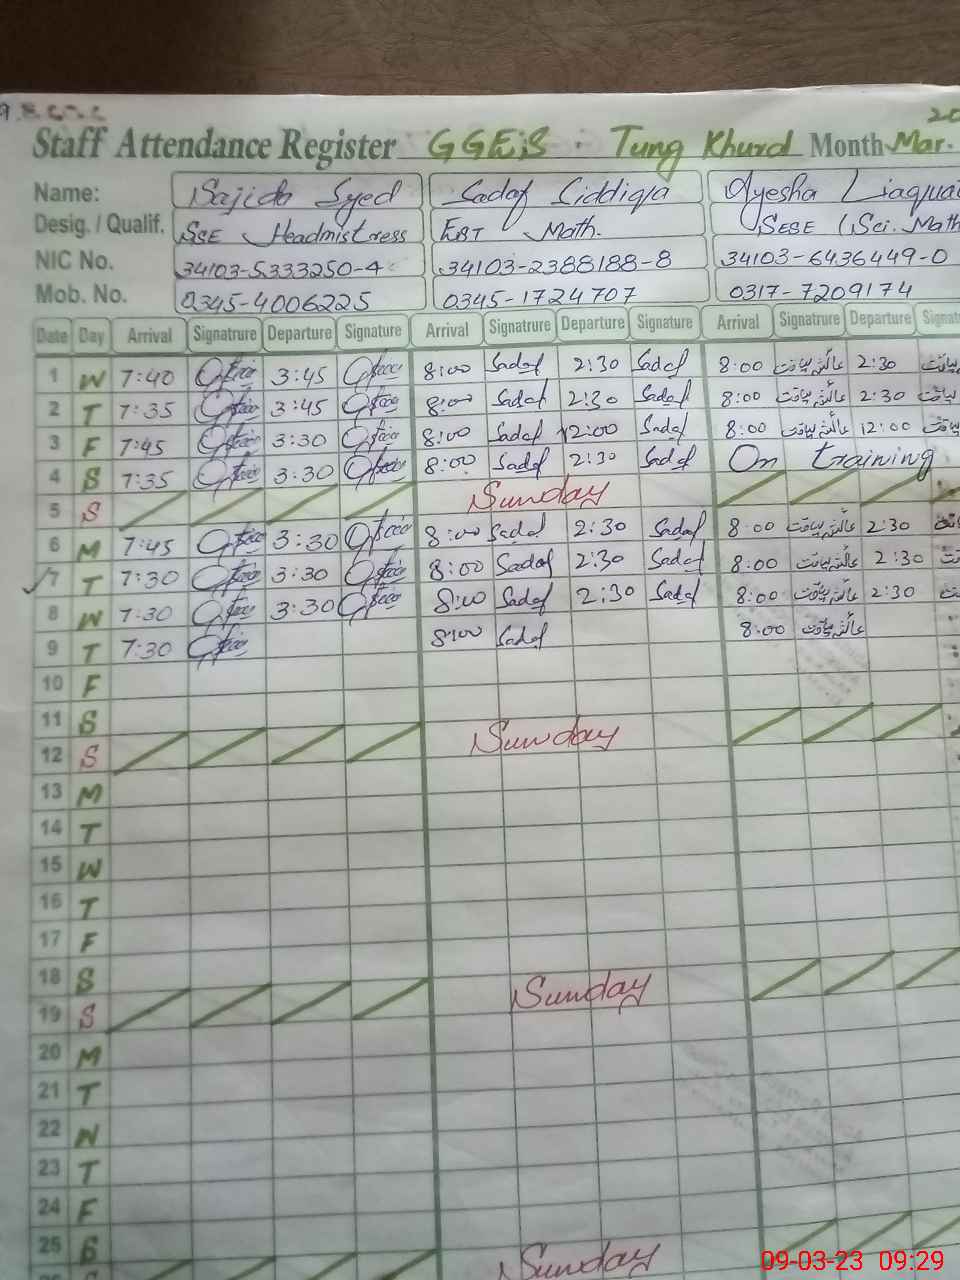 Staff Attendance Register GGEiS . Tung Khurd Month Mar.
Name: Sajida Syed Sadaf Siddiqa Ayesha Liaquat
Desig. / Qualif. SSE Headmistress EST Math. SESE (Sci. Math
NIC No. 34103-5333250-4 34103-2388188-8 34103-6436449-0
Mob. No. 0345-4006225 0345-1724707 0317-7209174
Date Day Arrival Signatrure Departure Signature Arrival Signatrure Departure Signature Arrival Signatrure Departure Signat
1 W 7:40 3:45 8:00 Sadaf 2:30 Sadaf 8:00 عائشہ لیاقت 2:30
2 T 7:35 3:45 8:00 Sadaf 2:30 Sadaf 8:00 عائشہ لیاقت 2:30
3 F 7:45 3:30 8:00 Sadaf 12:00 Sadaf 8:00 عائشہ لیاقت 12:00
4 S 7:35 3:30 8:00 Sadaf 2:30 Sadaf On training
5 S Sunday
6 M 7:45 3:30 8:00 Sadaf 2:30 Sadaf 8:00 عائشہ لیاقت 2:30
7 T 7:30 3:30 8:00 Sadaf 2:30 Sadaf 8:00 عائشہ لیاقت 2:30
8 W 7:30 3:30 8:00 Sadaf 2:30 Sadaf 8:00 عائشہ لیاقت 2:30
9 T 7:30 8:00 Sadaf 8:00 عائشہ لیاقت
10 F
11 S
12 S Sunday
13 M
14 T
15 W
16 T
17 F
18 S
19 S Sunday
20 M
21 T
22 W
23 T
24 F
25 S
Sunday
09-03-23 09:29